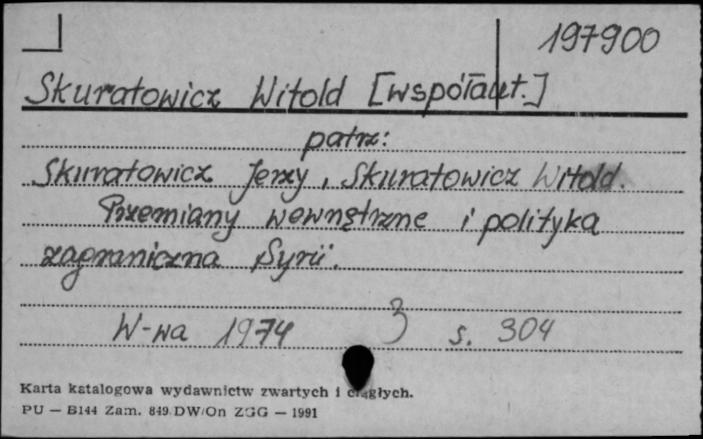 197900
Skuratowicz Witold [współaut.]
patrz:
Skuratowicz Jerzy, Skuratowicz Witold.
Przemiany wewnętrzne i polityka
zagraniczna Syrii.
W-wa 1974 3 s. 304
Karta katalogowa wydawnictw zwartych i ciągłych.
PU — B144 Zam. 849 DW/On ZGG — 1991